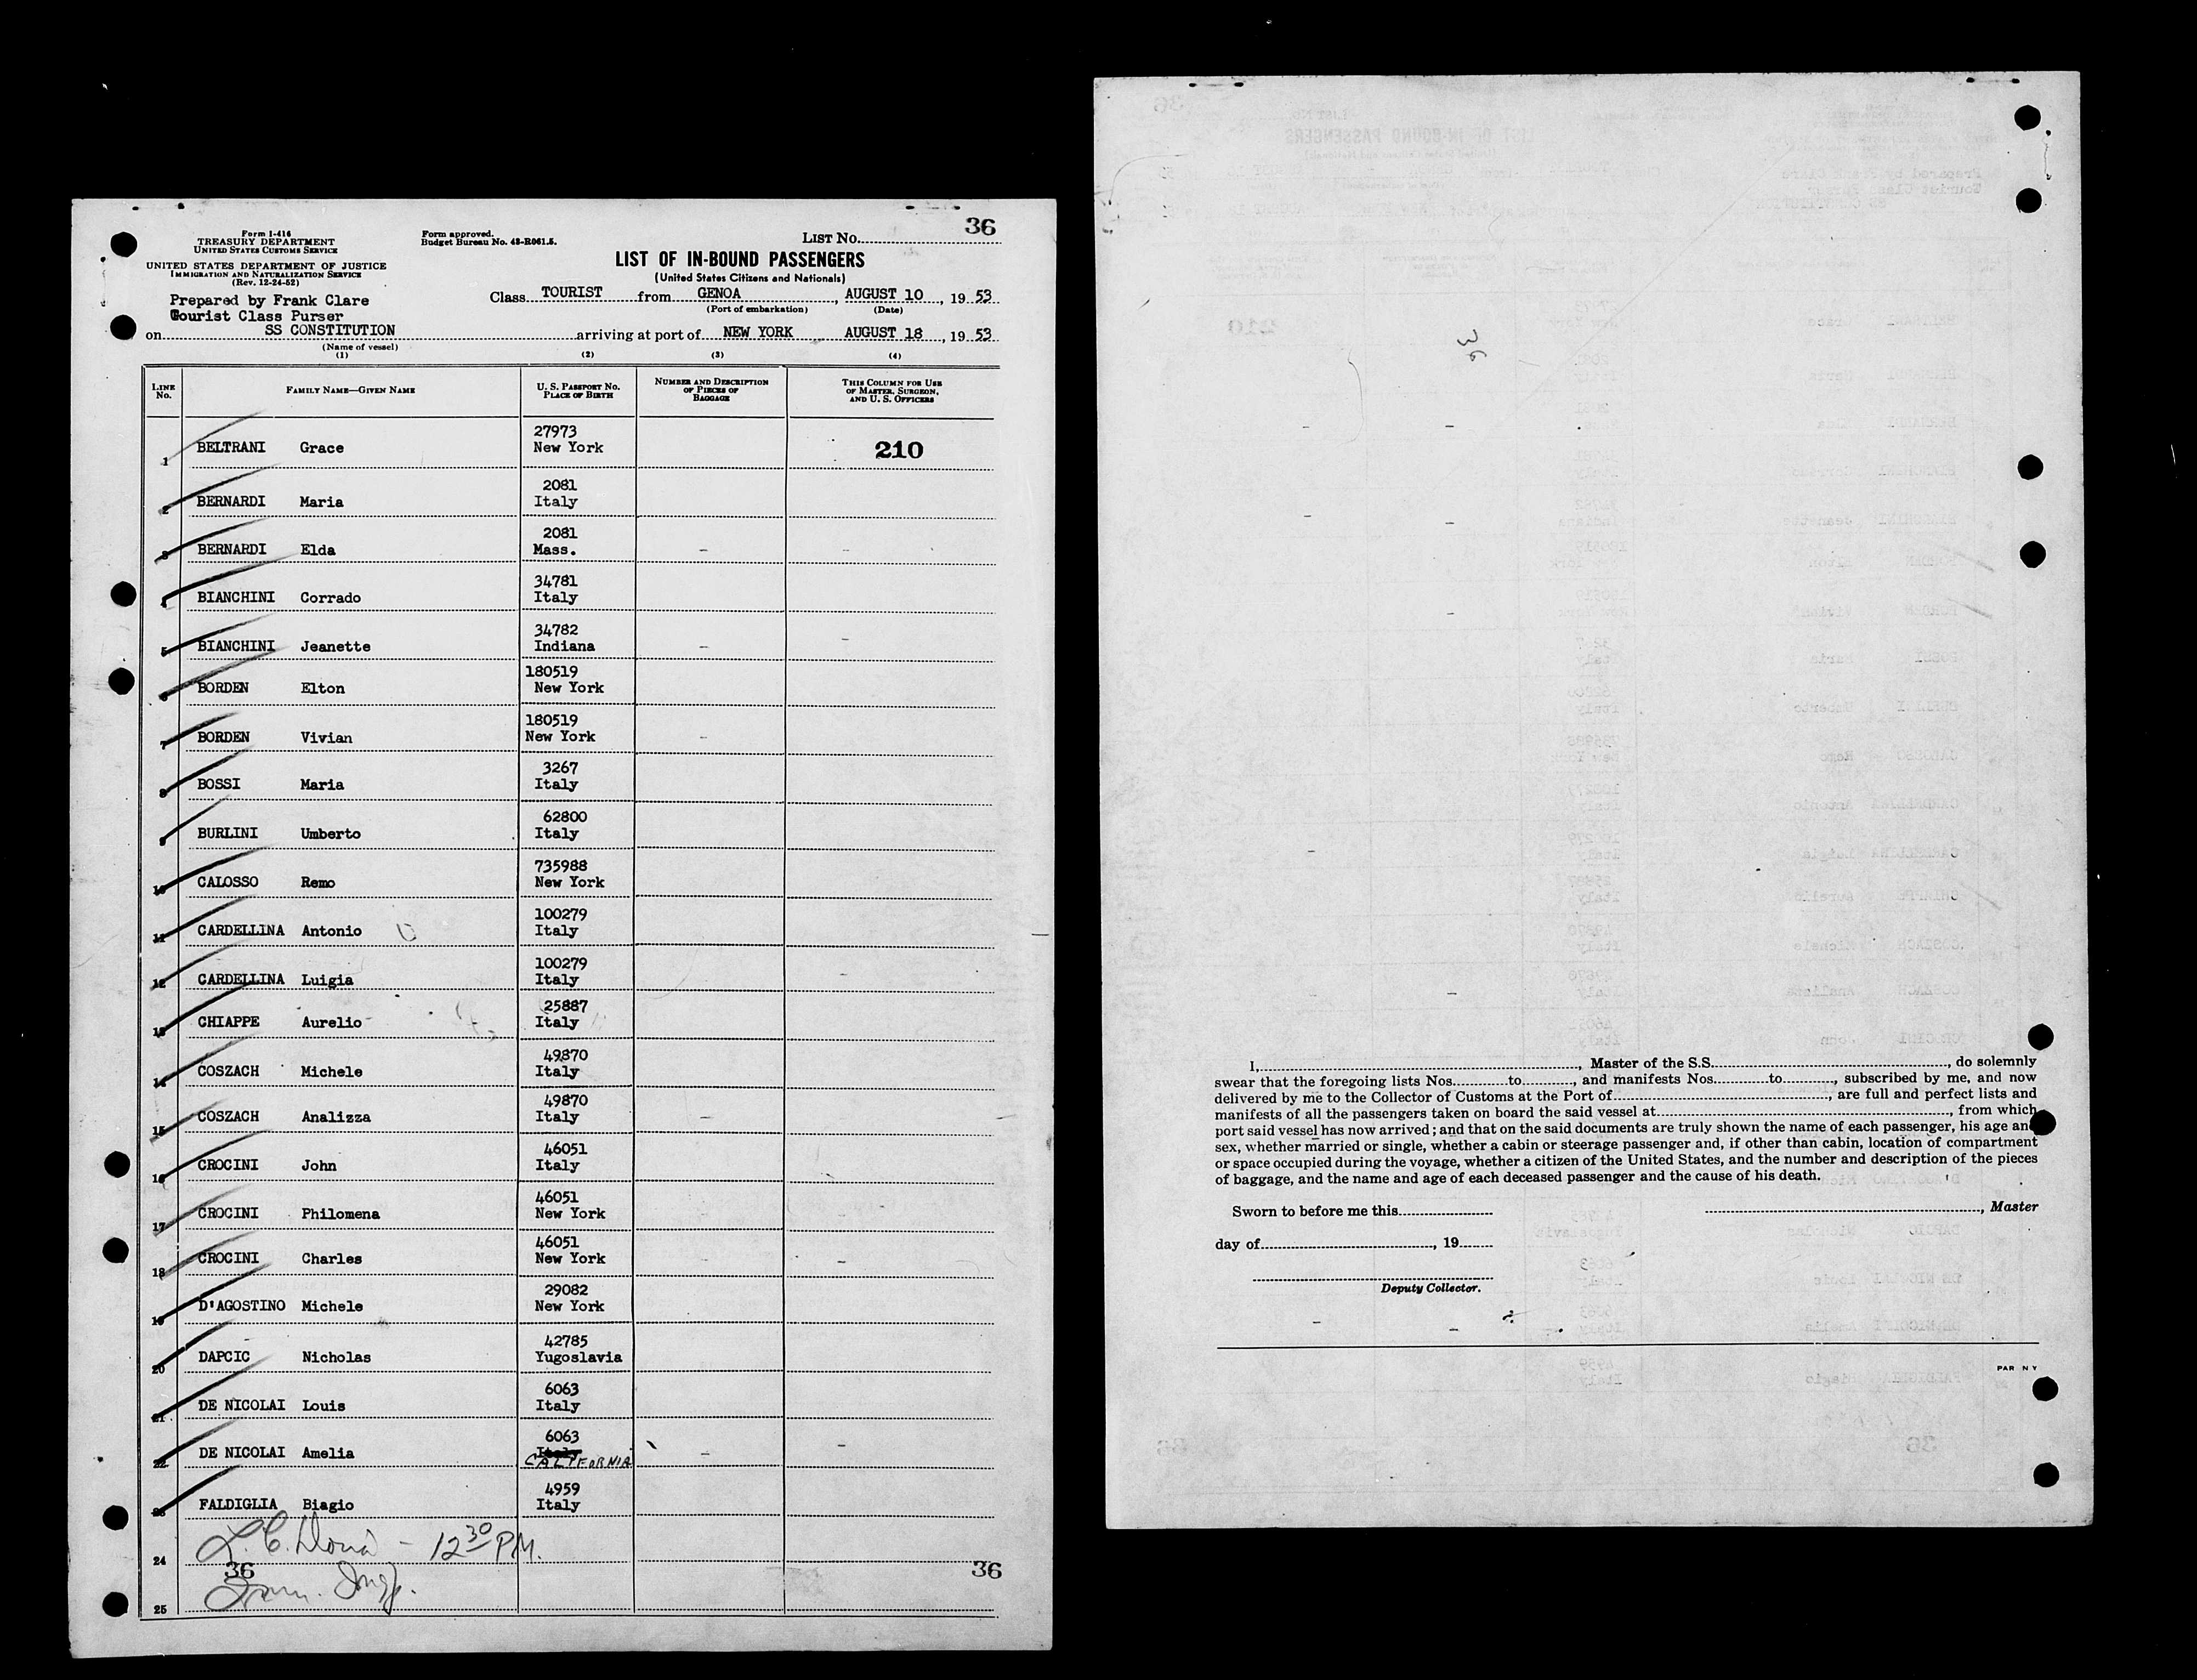 36
Form I-416
TREASURY DEPARTMENT
UNITED STATES CUSTOMS SERVICE
Form approved.
Budget Bureau No. 43-R061.5.
LIST No.
UNITED STATES DEPARTMENT OF JUSTICE
IMMIGRATION AND NATURALIZATION SERVICE
(Rev. 12-24-52)
LIST OF IN-BOUND PASSENGERS
(United States Citizens and Nationals)
Prepared by Frank Clare
Tourist Class Purser
Class TOURIST from GENOA, AUGUST 10, 1953
(Port of embarkation) (Date)
on SS CONSTITUTION arriving at port of NEW YORK AUGUST 18, 1953
(Name of vessel)
(1) (2) (3) (4)
LINE No. FAMILY NAME—GIVEN NAME U. S. PASSPORT No. PLACE OF BIRTH NUMBER AND DESCRIPTION OF PIECES OF BAGGAGE THIS COLUMN FOR USE OF MASTER, SURGEON, AND U. S. OFFICERS
27973
1 BELTRANI Grace New York 210
2081
2 BERNARDI Maria Italy
2081
3 BERNARDI Elda Mass. -
34781
4 BIANCHINI Corrado Italy
34782
5 BIANCHINI Jeanette Indiana - -
180519
6 BORDEN Elton New York
180519
7 BORDEN Vivian New York -
3267
8 BOSSI Maria Italy
62800
9 BURLINI Umberto Italy
735988
10 CALOSSO Remo New York
100279
11 CARDELLINA Antonio Italy
100279
12 CARDELLINA Luigia Italy -
25887
13 CHIAPPE Aurelio Italy
49870
14 COSZACH Michele Italy
49870
15 COSZACH Analizza Italy -
46051
16 CROCINI John Italy
46051
17 CROCINI Philomena New York
46051
18 CROCINI Charles New York - -
29082
19 D'AGOSTINO Michele New York
42785
20 DAPCIC Nicholas Yugoslavia
6063
21 DE NICOLAI Louis Italy
6063
22 DE NICOLAI Amelia Italy - -
CALIFORNIA
4959
23 FALDIGLIA Biagio Italy
12 30 PM.
24
36 36
25
I, , Master of the S.S. , do solemnly
swear that the foregoing lists Nos. to , and manifests Nos. to , subscribed by me, and now
delivered by me to the Collector of Customs at the Port of , are full and perfect lists and
manifests of all the passengers taken on board the said vessel at , from which
port said vessel has now arrived; and that on the said documents are truly shown the name of each passenger, his age and
sex, whether married or single, whether a cabin or steerage passenger and, if other than cabin, location of compartment
or space occupied during the voyage, whether a citizen of the United States, and the number and description of the pieces
of baggage, and the name and age of each deceased passenger and the cause of his death.
Sworn to before me this , Master
day of , 19
Deputy Collector.
PAR N Y
36